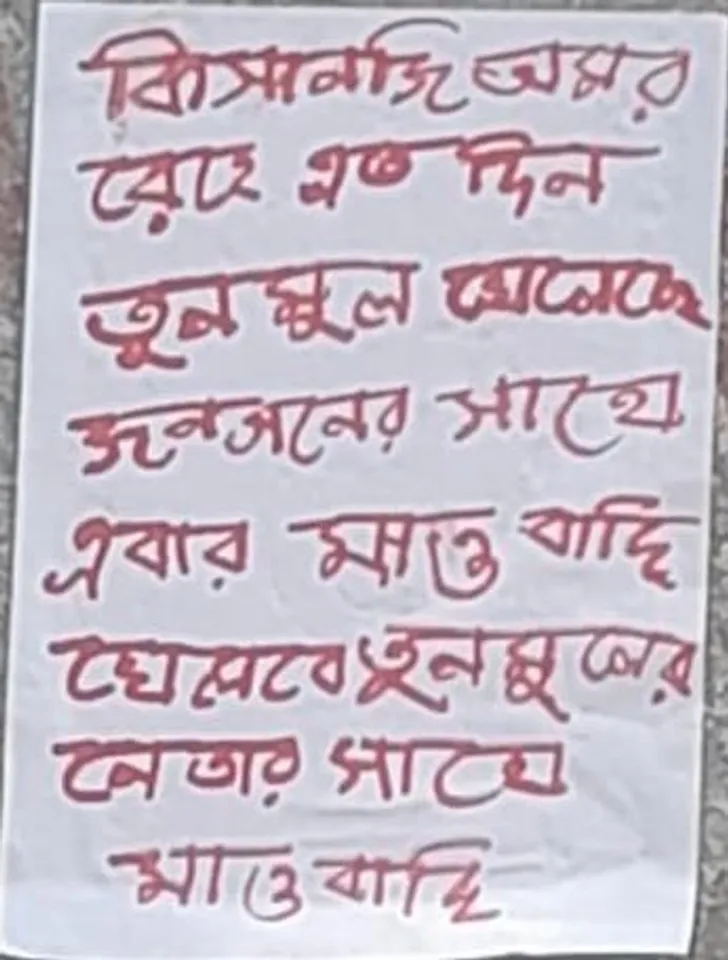 কিসানজি অমর
রেহে এত দিন
তুনমুল খেলেছে
জনগনের সাথে
এবার মাওবাদি
খেলবে তুনমুলের
নেতার সাথে
মাওবাদি